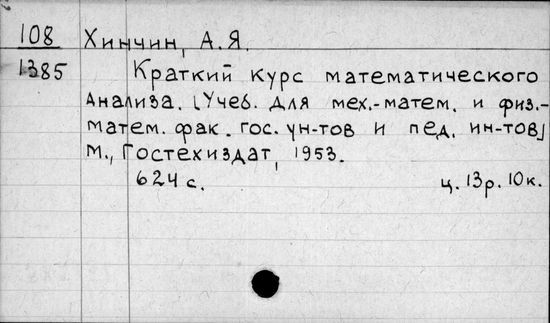 108 Хинчин, А.Я.
1385 Краткий курс математического
анализа. [Учеб. для мех.-матем. и физ.-
матем. фак. гос. ун-тов и пед. ин-тов]
М., Гостехиздат, 1953.
624 с. ц. 13р. 10к.